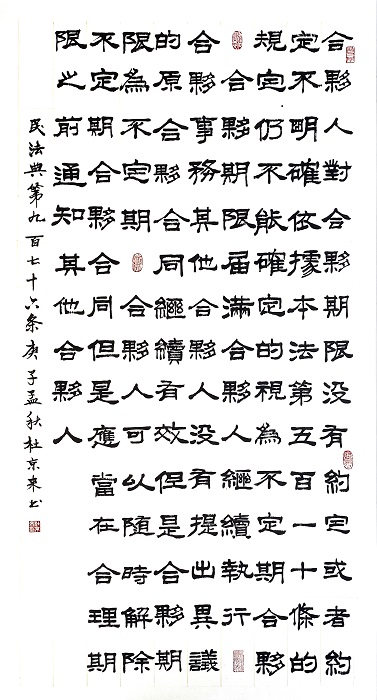 合夥人對合夥期限没有約定或者約
定不明確依據本法第五百一十條的
規定仍不能確定的視為不定期合夥
合夥期限届滿合夥人繼續執行
合夥事務其他合夥人没有提出異議
的原合夥合同繼續有效但是合夥期
限為不定期 合夥人可以随時解除
不定期合夥合同但是應當在合理期
限之前通知其他合夥人
民法典第九百七十六条庚子孟秋杜京来书